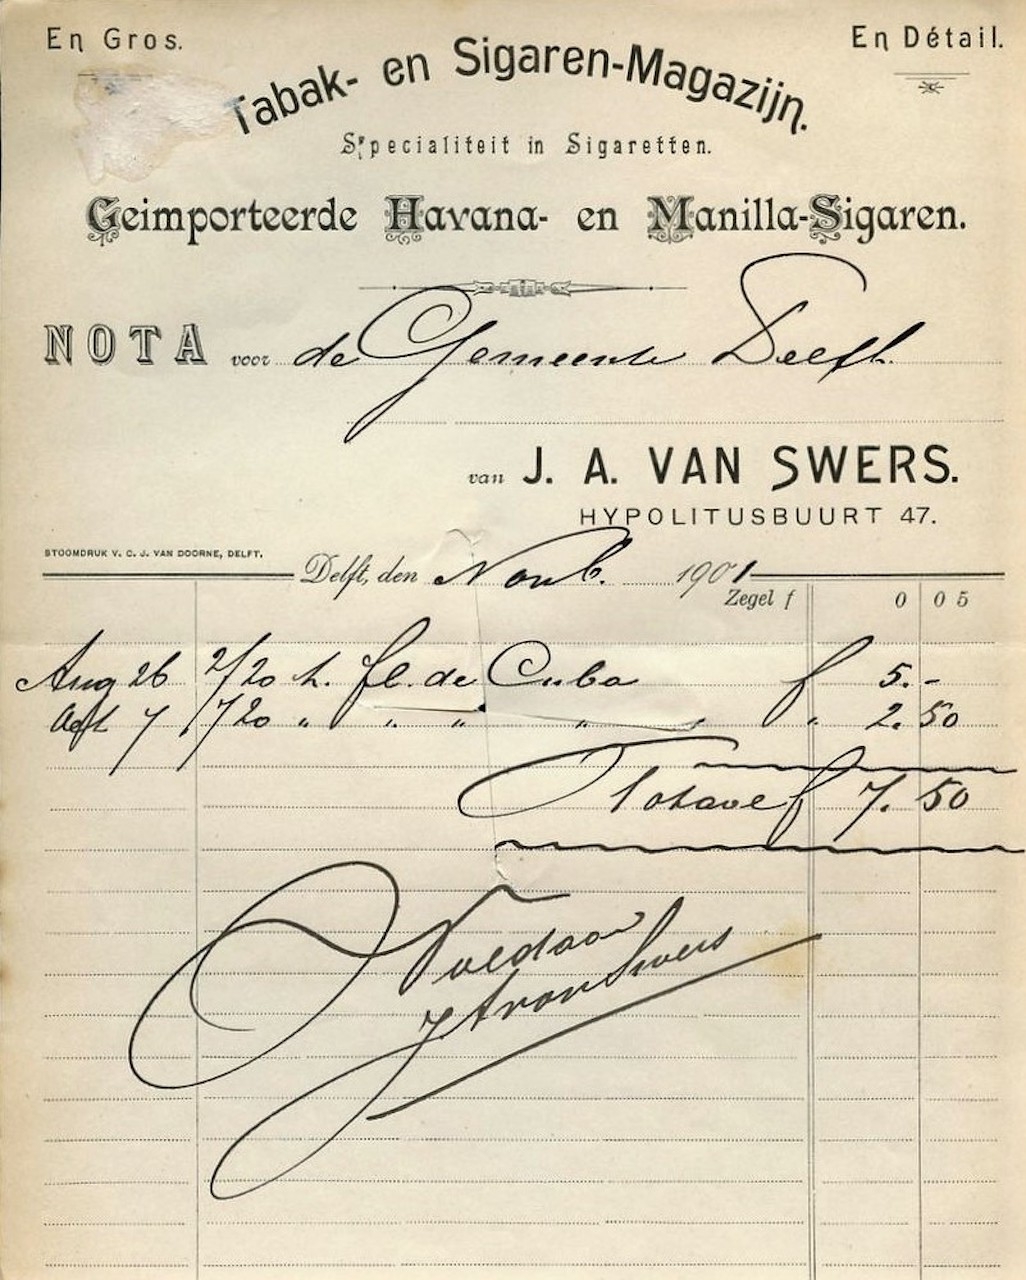 En Gros.
En Détail.
Tabak- en Sigaren-Magazijn.
Specialiteit in Sigaretten.
Geimporteerde Havana- en Manilla-Sigaren.
NOTA voor de Gemeente Delft.
van J. A. VAN SWERS.
HYPOLITUSBUURT 47.
STOOMDRUK V. C. J. VAN DOORNE, DELFT.
Delft, den Novb. 1901
Zegel f 0 05
Aug 26 2/20 k. fl. de Cuba f 5.-
Oct 7 1/20 " " " " " " 2.50
Totaal f 7.50
Voldaan
J A van Swers